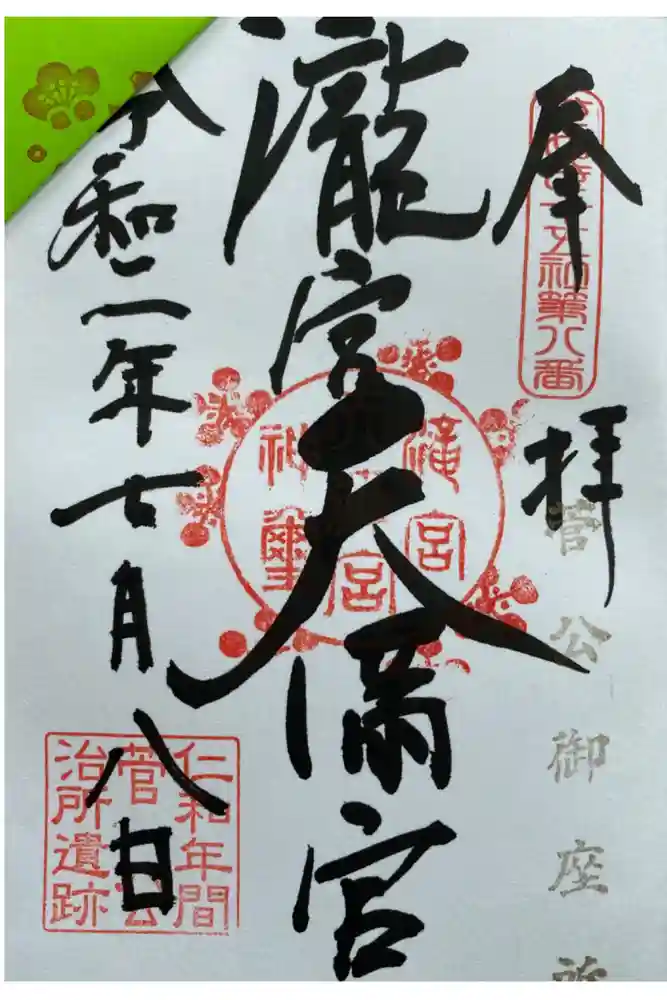 奉拝
十五社第八番
菅公御座所
瀧宮天満宮
滝宮
神璽
令和二年七月八日
仁和年間
菅公
治所遺跡